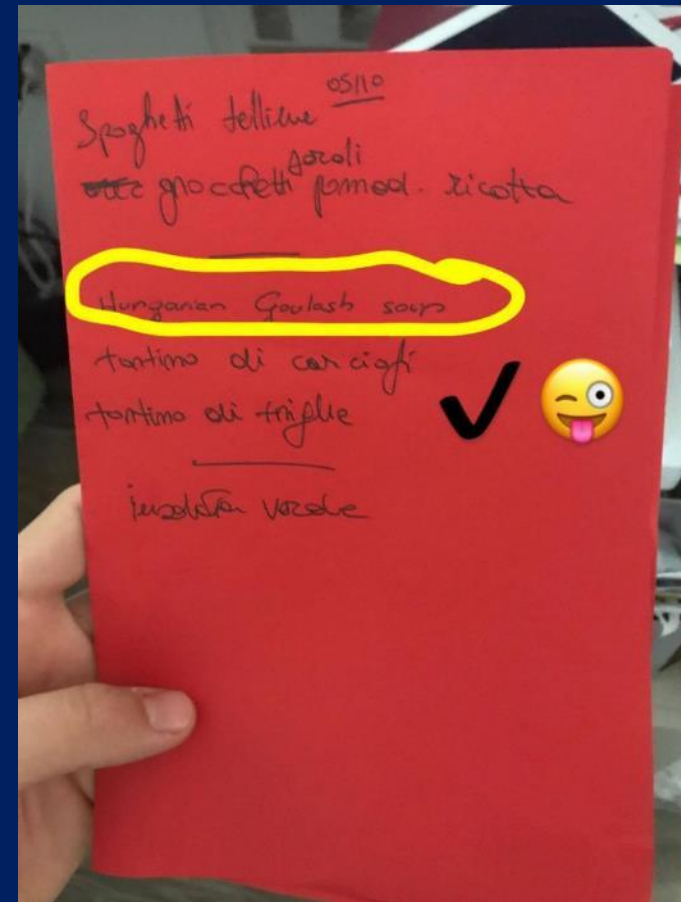 05/10
Spaghetti telline
fasoli
gnocchetti pomod. ricotta
Hungarian Goulash soup
tortino di carciofi
tortino di triglie
insalata verde